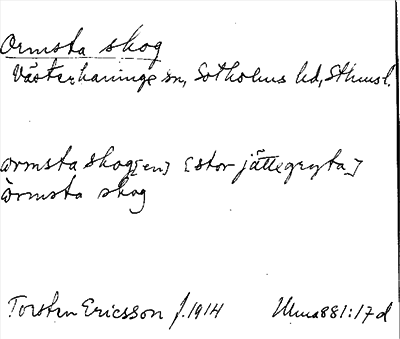 Ormsta skog
Västerhaninge sn, Sotholms hd, Sthmsl.
ormsta skog[en] [stor jättegryta]
òrmsta skog
Torsten Ericsson f. 1914 Uma881:17d